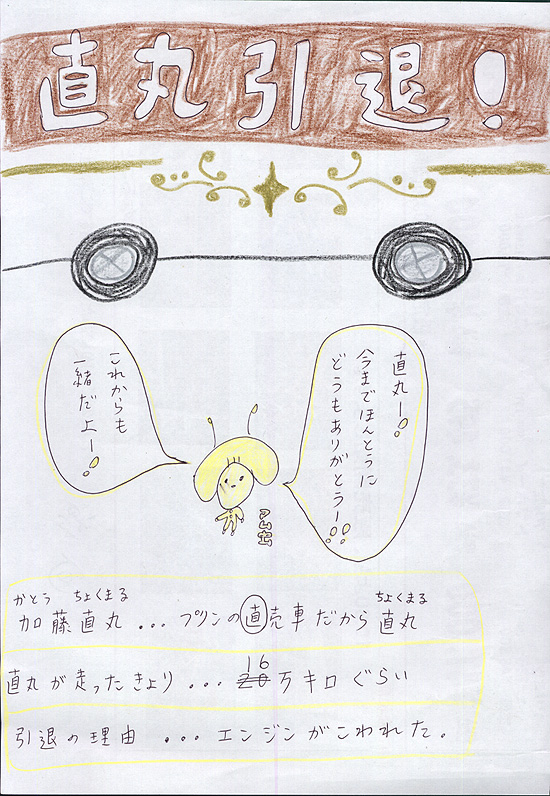 直丸引退!
直丸ー!
今までほんとうに
どうもありがとうー!!
これからも
一緒だよー!
かとう ちょくまる ちょくまる
加藤直丸...プリンの直売車だから直丸
16
直丸が走ったきより...20万キロぐらい
引退の理由...エンジンがこわれた。